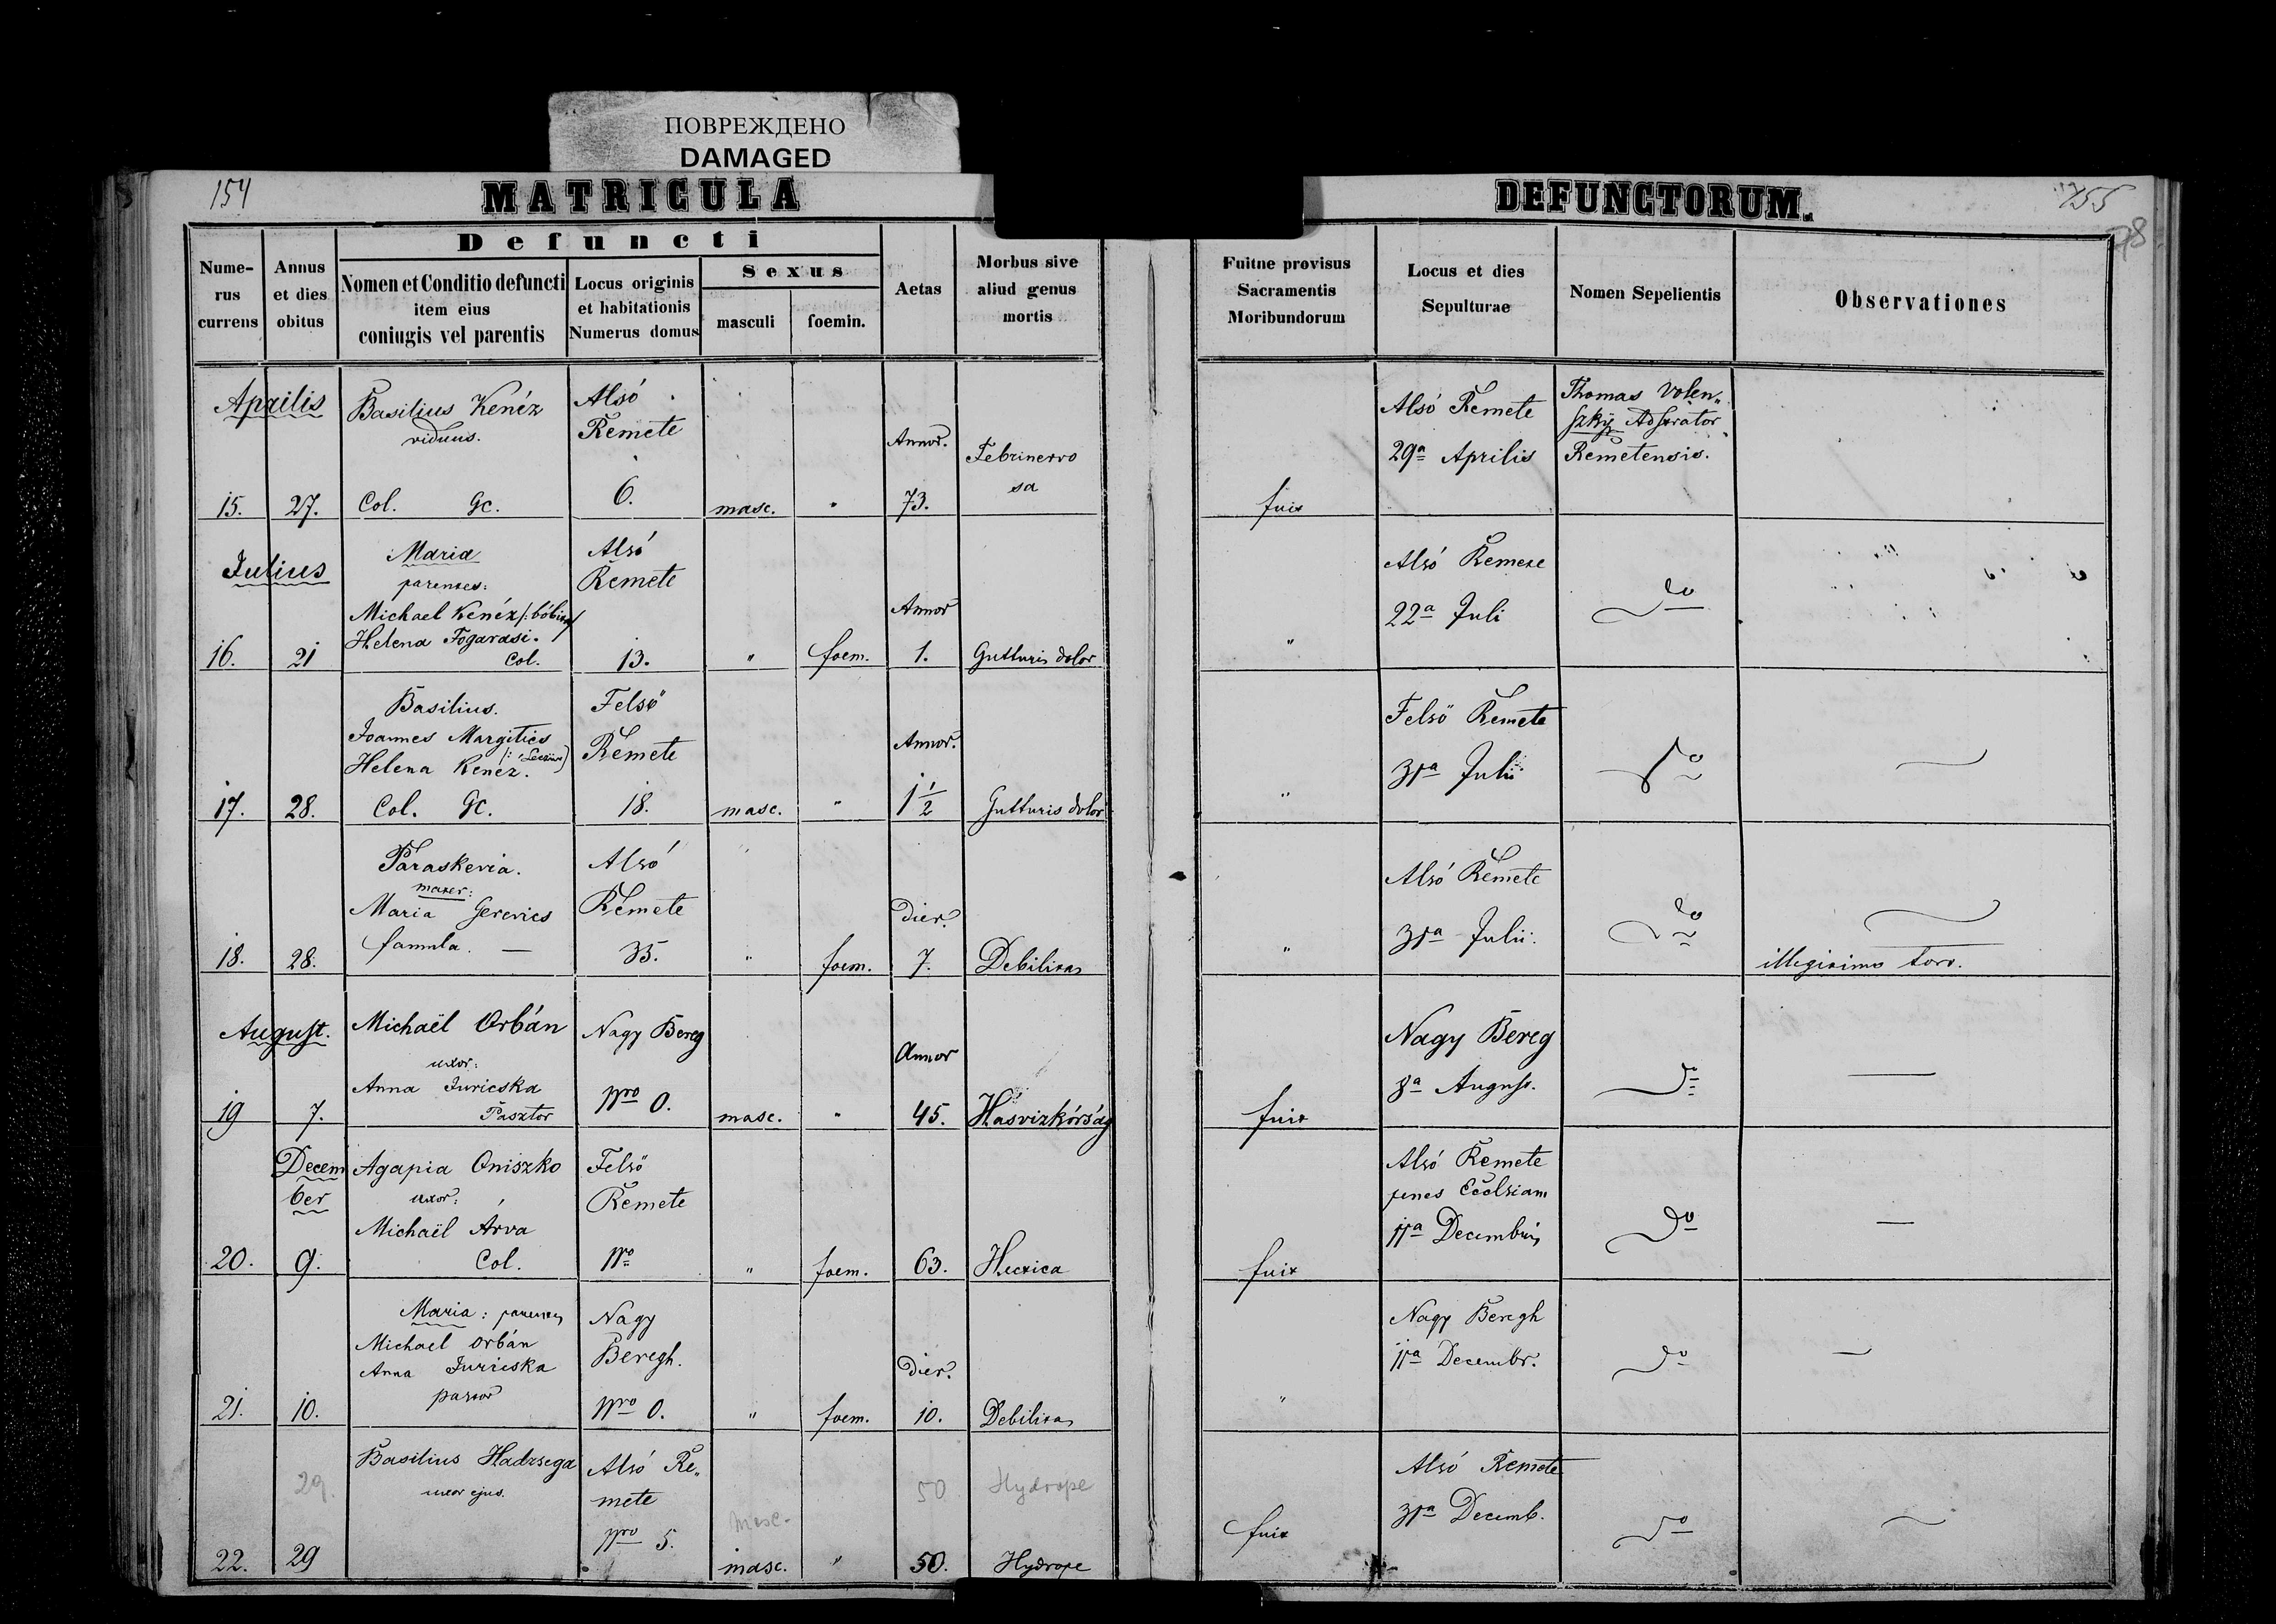 ПОВРЕЖДЕНО
DAMAGED
154
MATRICULA
DEFUNCTORUM.
155
78
Defuncti
Nume-
rus
currens
Annus
et dies
obitus
Nomen et Conditio defuncti
item eius
coniugis vel parentis
Locus originis
et habitationis
Numerus domus
Sexus
masculi
foemin.
Aetas
Morbus sive
aliud genus
mortis
Fuitne provisus
Sacramentis
Moribundorum
Locus et dies
Sepulturae
Nomen Sepelientis
Observationes
Aprilis
15.
27.
Basilius Kenéz
viduus.
Col. Gc.
Alsó
Remete
6.
masc.
"
Annor.
73.
Febrinervo
sa
fuit
Alsó Remete
29a Aprilis
Thomas Volen„
szky Adstrator
Remetensis.
Julius
16.
21
Maria
parentes:
Michael Kenéz
Helena Fogarasi.
Col.
Alsó
Remete
13.
"
foem.
Annor
1.
Gutturis dolor
"
Alsó Remete
22a Juli
do
17.
28.
Basilius.
Joannes Margitics
Helena Kenéz.
Col. Gc.
Felsö
Remete
18.
masc.
"
Annor.
1 1/2
Gutturis dolor
"
Felsö Remete
31a Julii
do
18.
28.
Paraskevia.
mater:
Maria Gerevics
famula. —
Alsó
Remete
35.
"
foem.
Dier.
7.
Debilitas
"
Alsó Remete
31a Julii.
do
illegitimo toro.
August.
19
7.
Michaël Orbán
uxor:
Anna Juricska
Pasztor
Nagy Bereg
Nro 0.
masc.
"
Annor
45.
Hasvizkórság
fuit
Nagy Bereg
8a August.
do
—
Decem
ber
20.
9.
Agapia Oniszko
uxor:
Michaël Árva
Col.
Felsö
Remete
Nro
"
foem.
63.
Hectica
fuit
Alsó Remete
penes Ecclsiam
11a Decembris
do
—
21.
10.
Maria: parentes
Michael Orbán
Anna Juricska
pastor
Nagy
Beregh.
Nro 0.
"
foem.
Dier.
10.
Debilitas
"
Nagy Beregh
11a Decembr.
do
—
29.
22.
29
Basilius Hadzsega
uxor ejus.
Alsó Re„
mete
Nro 5.
masc.
masc.
"
50
50.
Hydrope
Hydrope
fuit
Alsó Remete
31a Decemb.
do